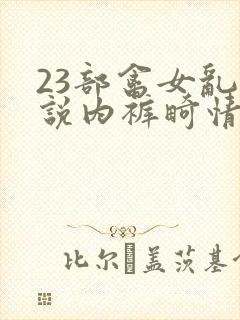 23部禽女乱
説内裤畸情
比尔�盖茨基